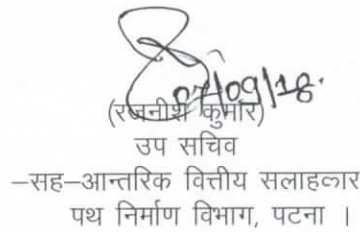 07/09/18.
(रजनीश कुमार)
उप सचिव
–सह–आन्तरिक वित्तीय सलाहलार
पथ निर्माण विभाग, पटना ।